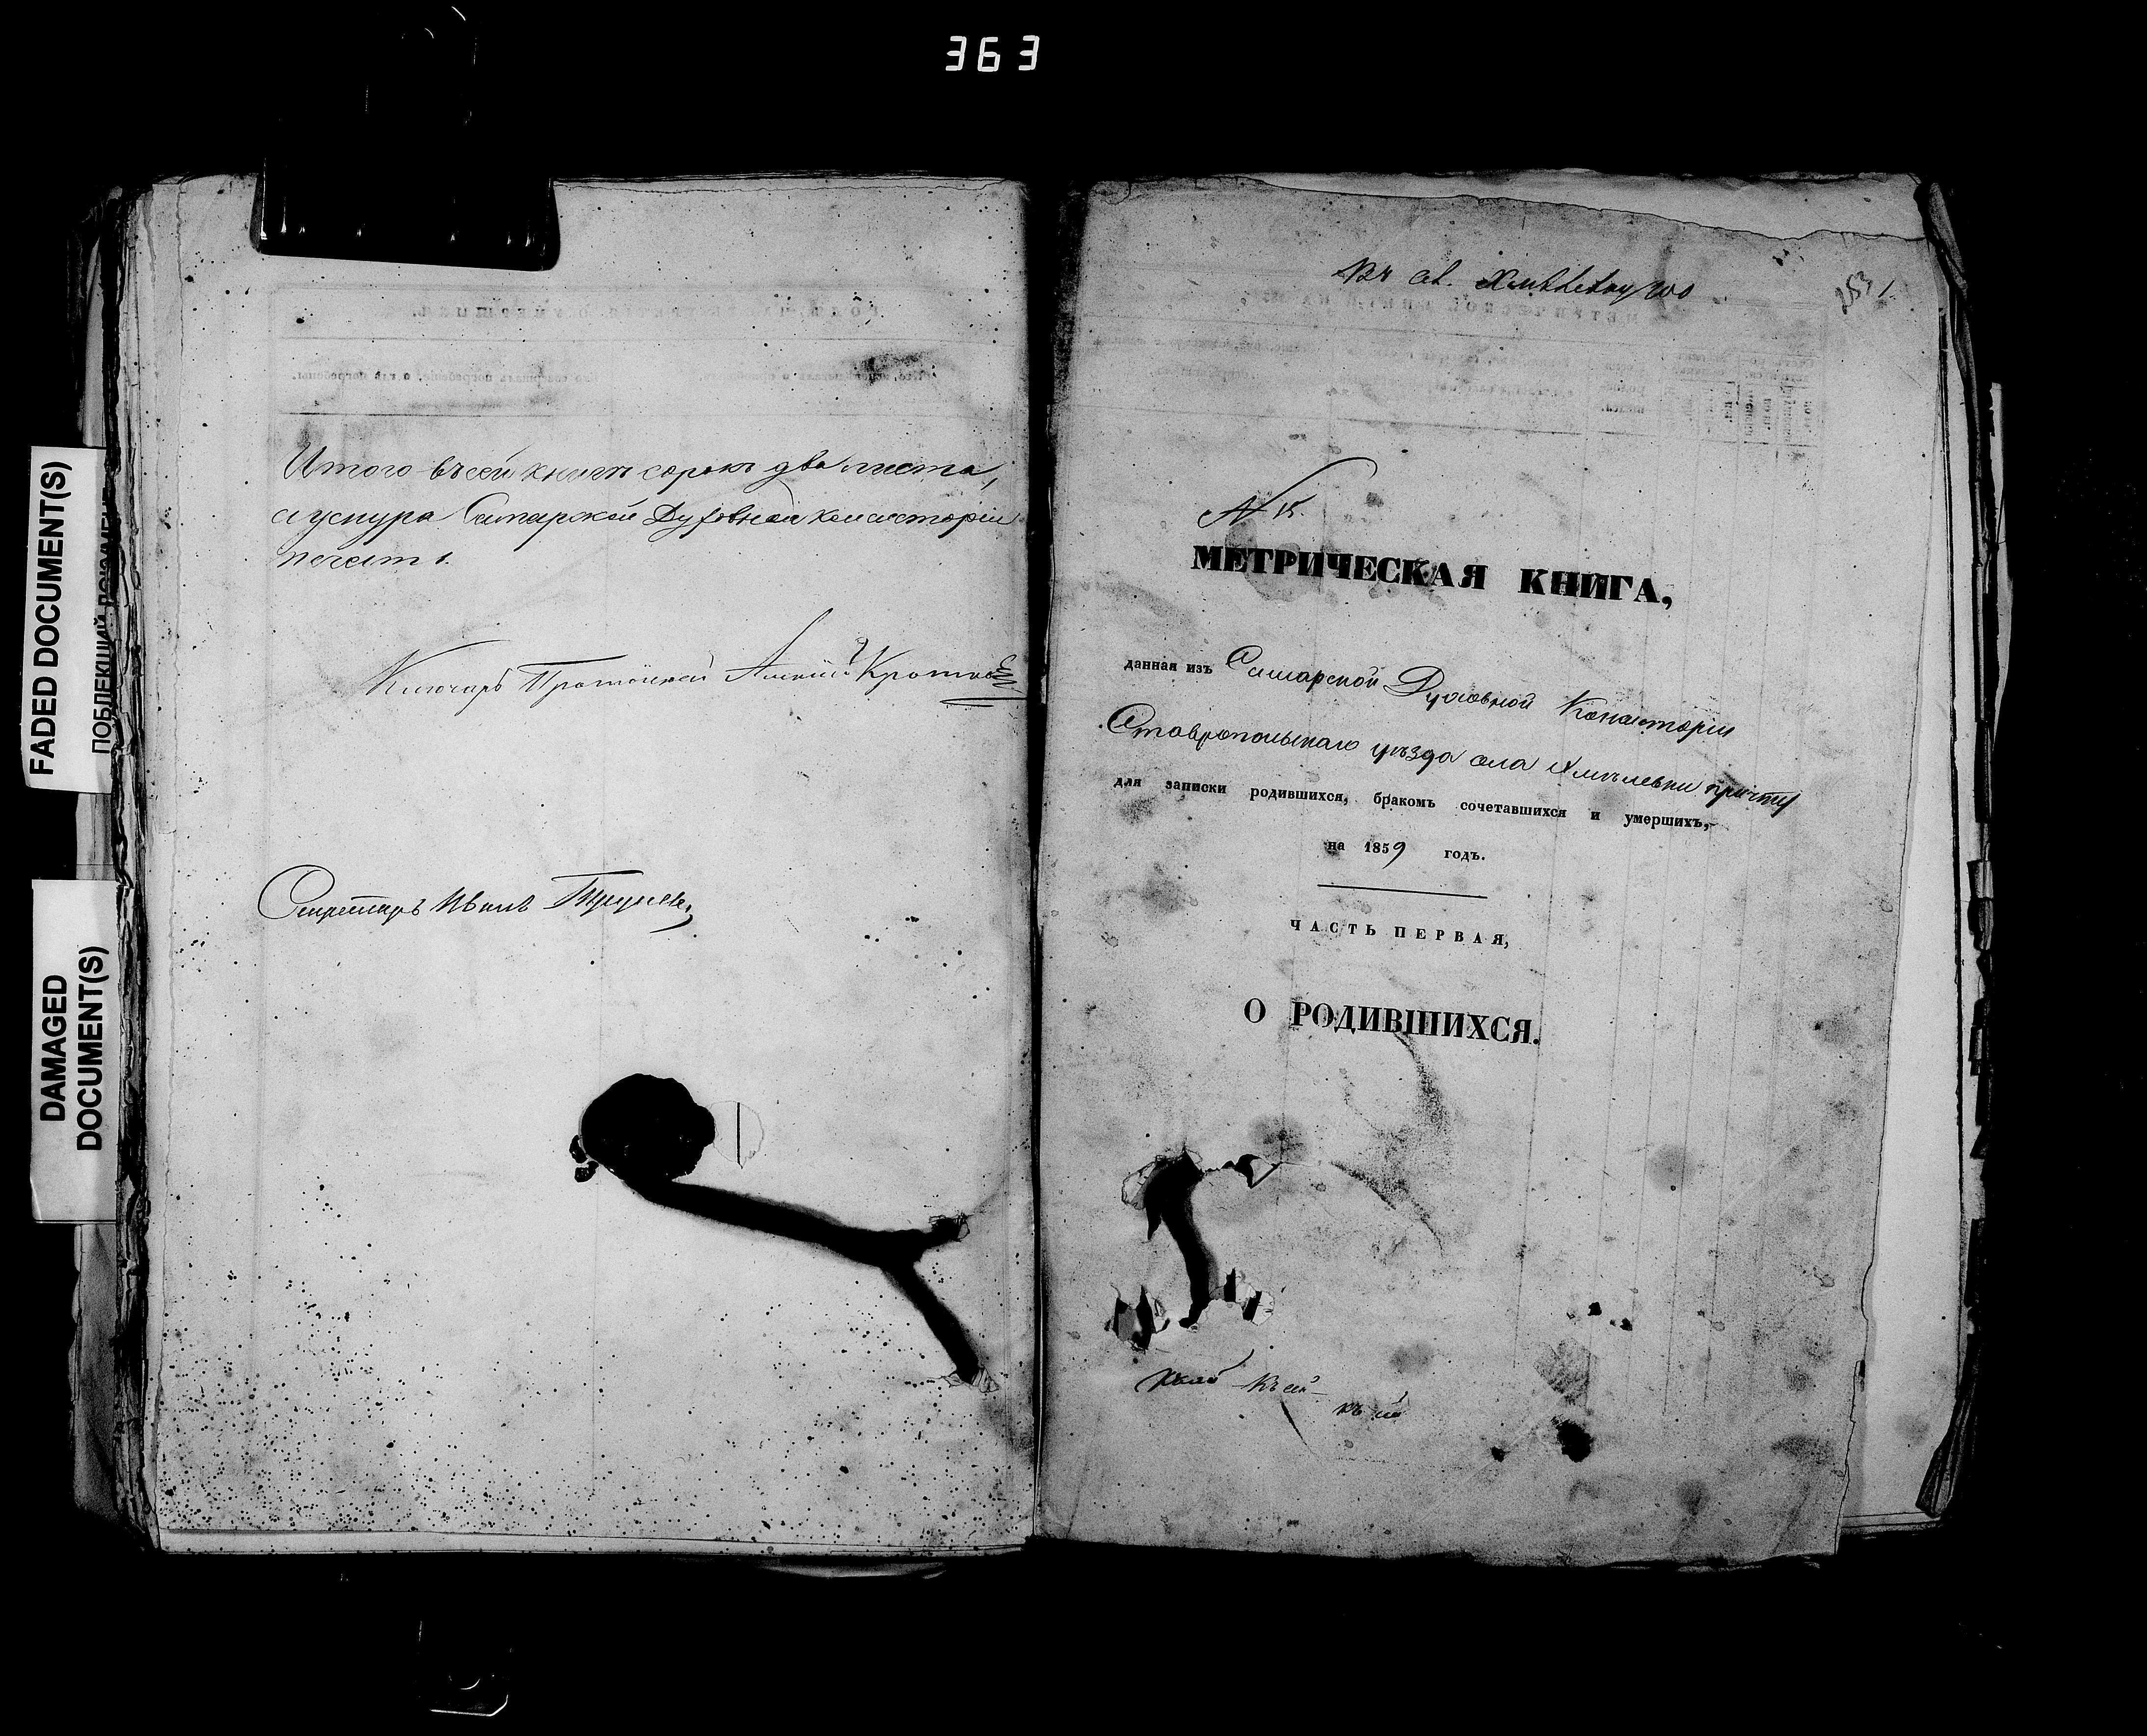 363
FADED DOCUMENT(S)
ПОБЛЕКШИЙ ДОКУМЕНТ
DAMAGED
DOCUMENT(S)
Итого въ сей книгѣ сорокъ два листа,
а у снура Самарской Духовной Консисторіи
печать.
Ключарь Протоіерей Алексій Кротковъ
Секретарь Иванъ
Въ с. Хмѣлевку
253 1
№ 15.
МЕТРИЧЕСКАЯ КНИГА,
данная изъ Самарской Духовной Консисторіи
Ставропольскаго уѣзда села Хмѣлевки причту
для записки родившихся, бракомъ сочетавшихся и умершихъ,
на 1859 годъ.
ЧАСТЬ ПЕРВАЯ,
О РОДИВШИХСЯ.
къ сей
къ